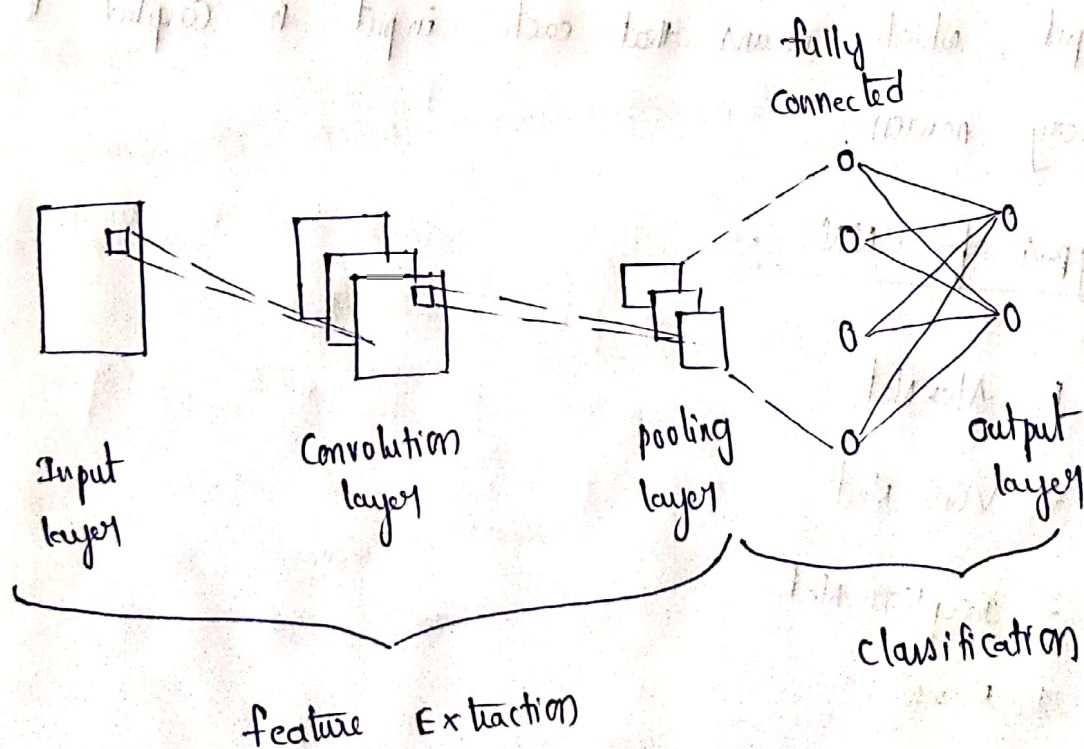 fully
connected
Input
layer
Convolution
layer
pooling
layer
output
layer
classification
feature Extraction